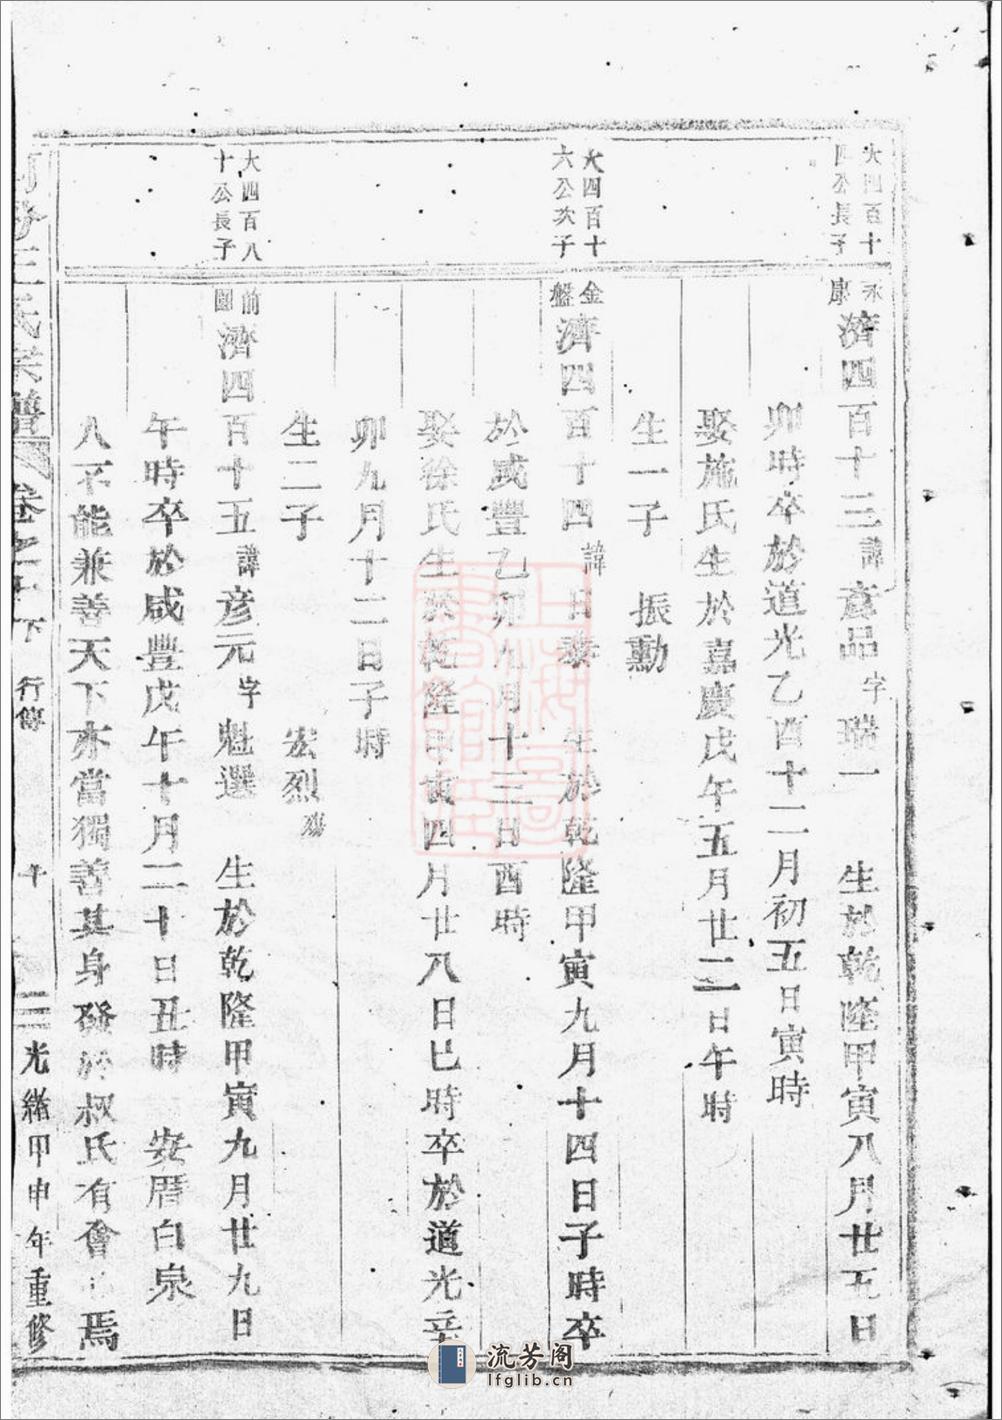 大四百十
四公長子
永
康
濟四百十三諱彥品字瑞一 生於乾隆甲寅八月廿五日
卯時卒於道光乙酉十二月初五日寅時
娶施氏生於嘉慶戊午五月廿二日午時
生一子 振勳
大四百十
六公次子
金
盤
濟四百十四諱日泰 生於乾隆甲寅九月十四日子時卒
於咸豐乙卯九月十三日酉時
娶徐氏生於乾隆甲寅四月廿八日巳時卒於道光辛
卯九月十二日子時
生二子 宏烈殤
大四百八
十公長子
前
園
濟四百十五諱彦元字魁選 生於乾隆甲寅九月廿九日
午時卒於咸豐戊午十月二十日丑時 安厝白泉
人不能兼善天下亦當獨善其身發於叔氏有會焉
王氏宗譜 卷之十下 行傳 二 光緒甲申年重修
上海圖書館藏
流芳阁
lfglib.cn